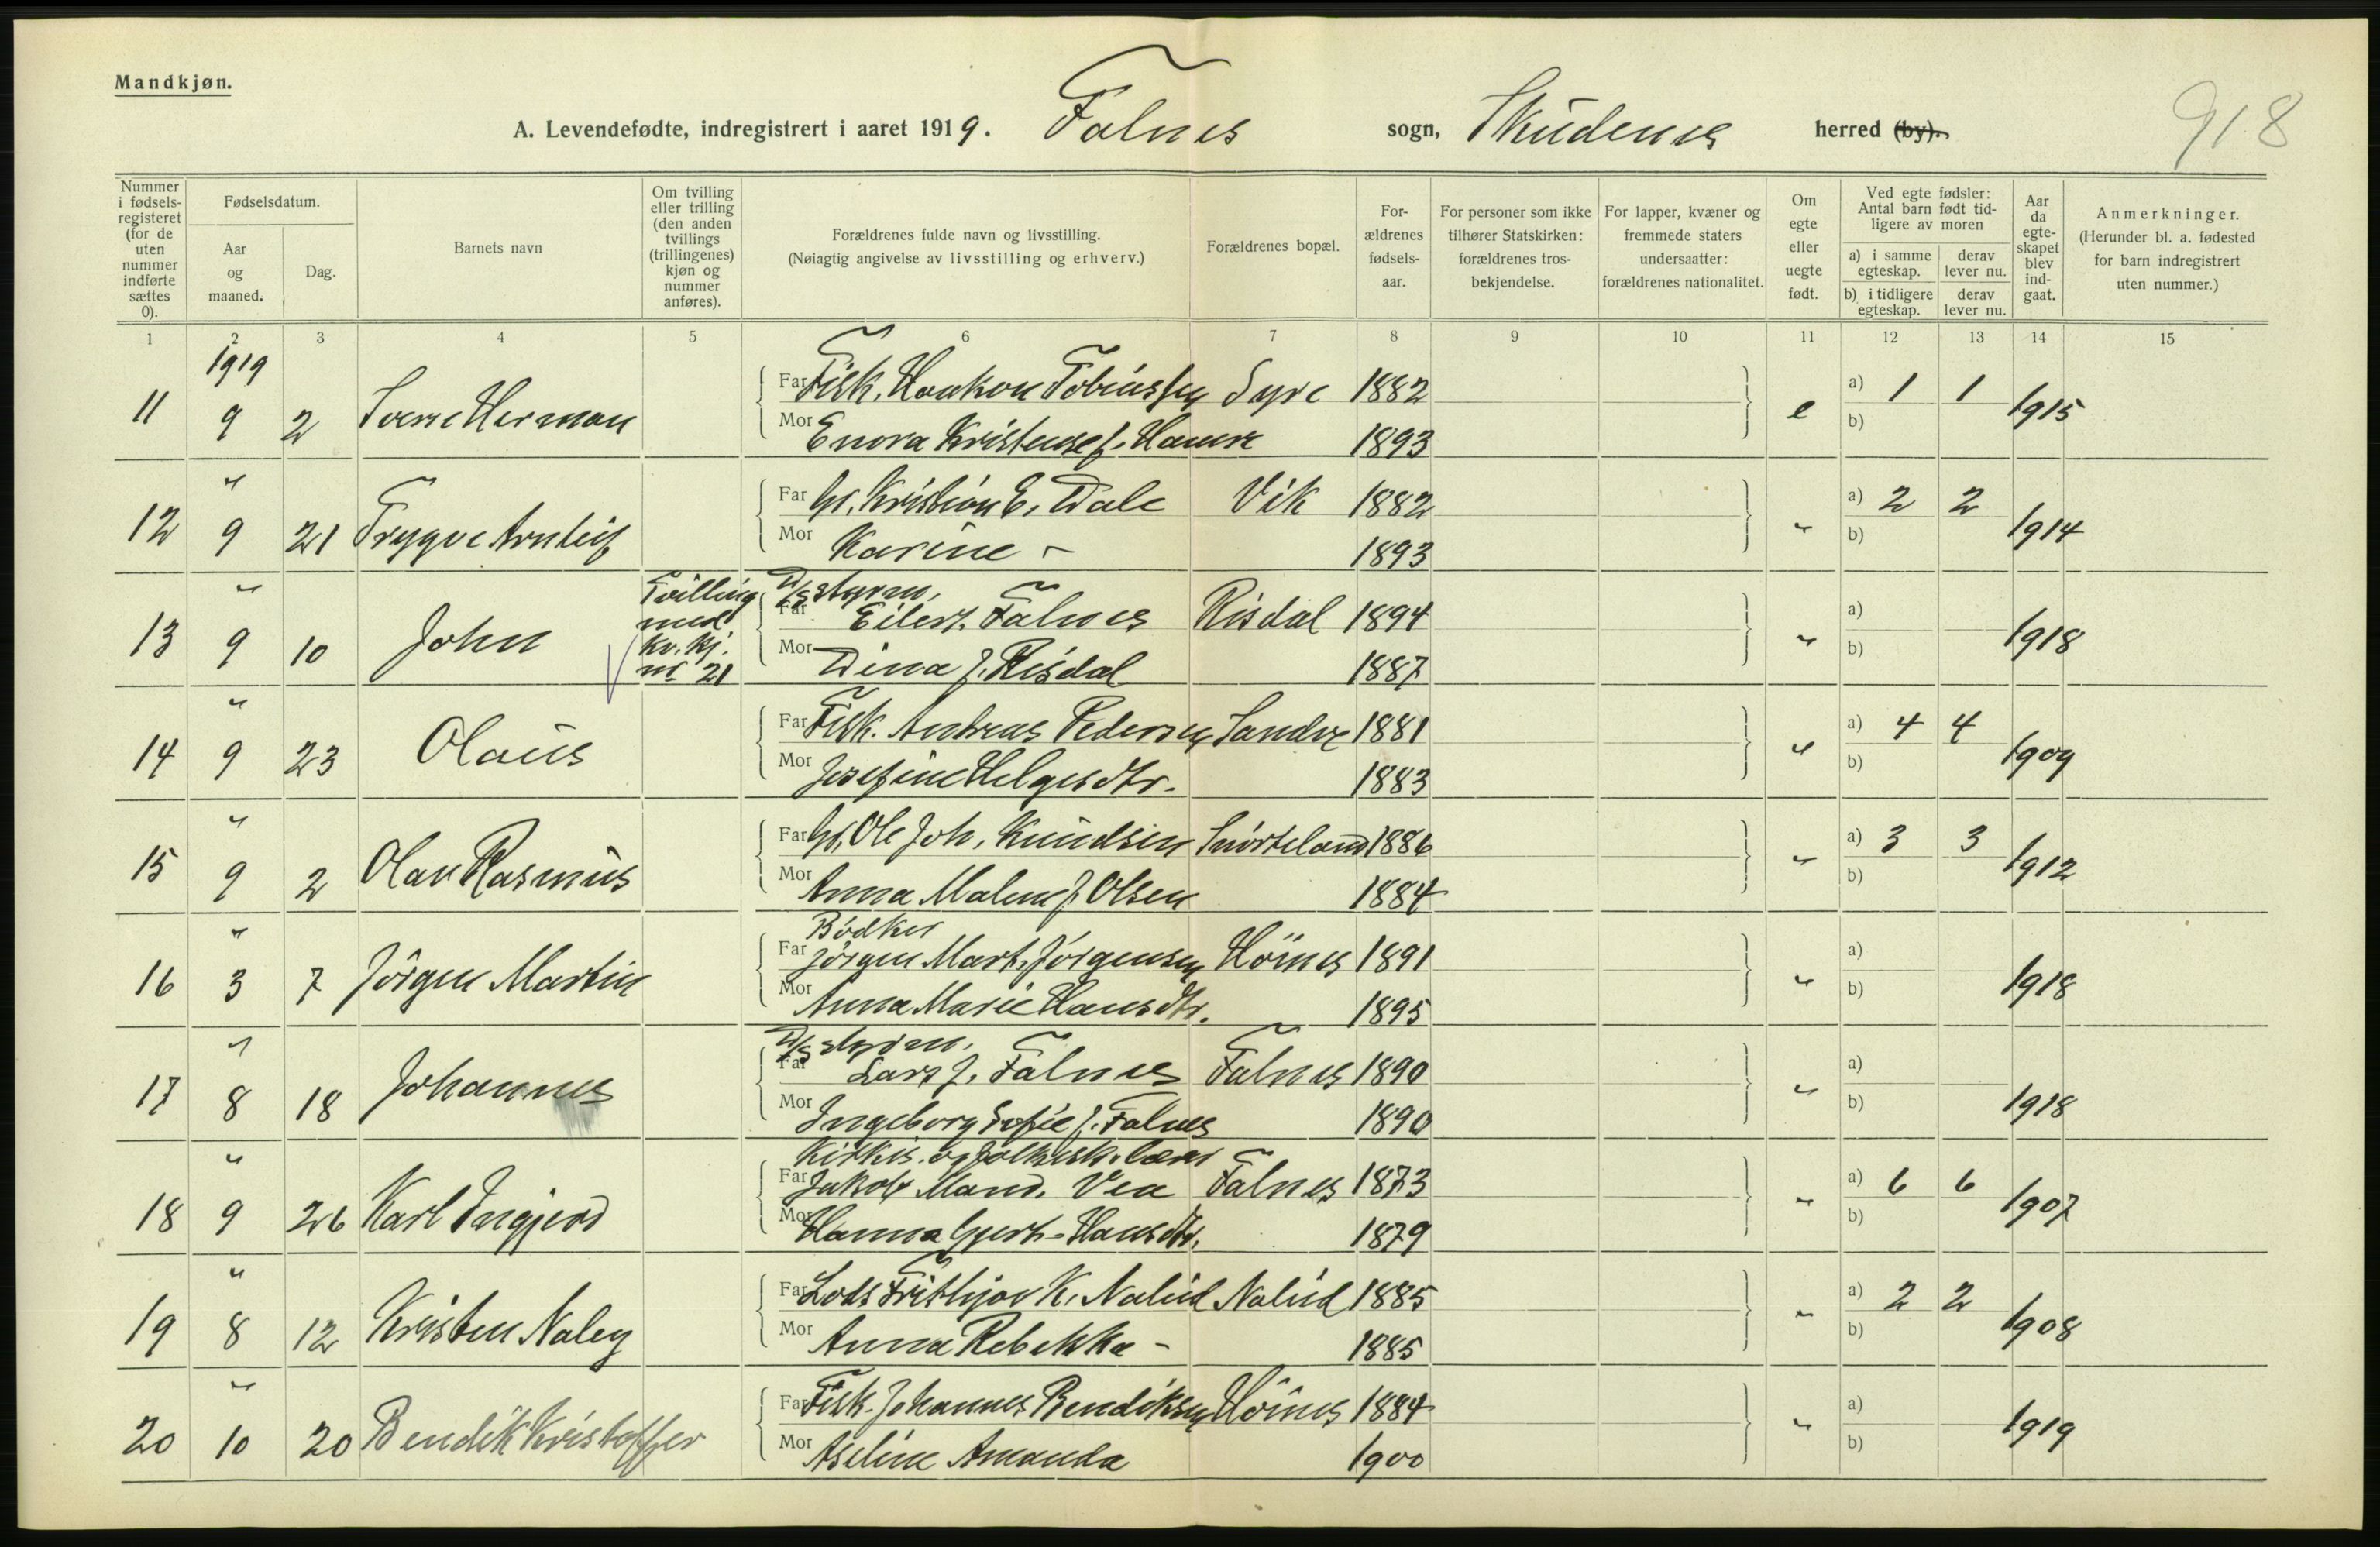 Mandkjøn.
918
A. Levendefødte, indregistrert i aaret 1919. Falnes sogn, Skudenes herred (by).
Nummer i fødsels-registeret (for de uten nummer indførte sættes 0).
Fødselsdatum.
Aar og maaned.
Dag.
Barnets navn
Om tvilling eller trilling (den anden tvillings (trillingenes) kjøn og nummer anføres).
Forældrenes fulde navn og livsstilling.
(Nøiagtig angivelse av livsstilling og erhverv.)
Forældrenes bopæl.
For-ældrenes fødsels-aar.
For personer som ikke tilhører Statskirken: forældrenes tros-bekjendelse.
For lapper, kvæner og fremmede staters undersaatter: forældrenes nationalitet.
Om egte eller uegte født.
Ved egte fødsler: Antal barn født tid-ligere av moren
a) i samme egteskap.
derav lever nu.
b) i tidligere egteskap.
derav lever nu.
Aar da egte-skapet blev ind-gaat.
Anmerkninger.
(Herunder bl. a. fødested for barn indregistrert uten nummer.)
1 2 3 4 5 6 7 8 9 10 11 12 13 14 15
1919
11 9 2 Sverre Herman Far Fisk. Haakon Tobiassen Syre 1882 e a) 1 1 1915
Mor Enora Kristense f. Hansen 1893 b)
"
12 9 21 Trygve Arnleif Far Gr. Kristian E. Dale Vik 1882 " a) 2 2 1914
Mor Karine - 1893 b)
"
13 9 10 John Tvilling med kv. kj. nr 21 D/S styrm. Far Eilert Falnes Risdal 1894 " a) 1918
Mor Dina f. Risdal 1887 b)
"
14 9 23 Olaus Far Fisk. Andreas Pedersen Sandve 1881 " a) 4 4 1909
Mor Josefine Helgesdtr. 1883 b)
"
15 9 2 Olav Rasmus Far Gr. Ole Joh. Knudsen Snørteland 1886 " a) 3 3 1912
Mor Anna Malene f. Olsen 1884 b)
"
16 3 7 Jørgen Martin Bødker Far Jørgen Mart. Jørgensen Høines 1891 " a) 1918
Mor Anna Marie Hansdtr. 1895 b)
"
17 8 18 Johannes D/S styrm. Far Lars J. Falnes Falnes 1890 " a) 1918
Mor Ingeborg Sofie f. Falnes 1890 b)
"
18 9 26 Karl Ingjerd Kirkes. og folkesk. lærer Far Jakob Mand. Vea Falnes 1873 " a) 6 6 1907
Mor Hanna Gjert. Hansdtr. 1879 b)
"
19 8 12 Kristen Naley Far Lods Frithjov K. Nalud Nalud 1885 " a) 2 2 1908
Mor Anna Rebekka - 1885 b)
"
20 10 20 Bendik Kristoffer Far Fisk. Johannes Bendiksen Høines 1884 " a) 1919
Mor Aseline Amanda 1900 b)